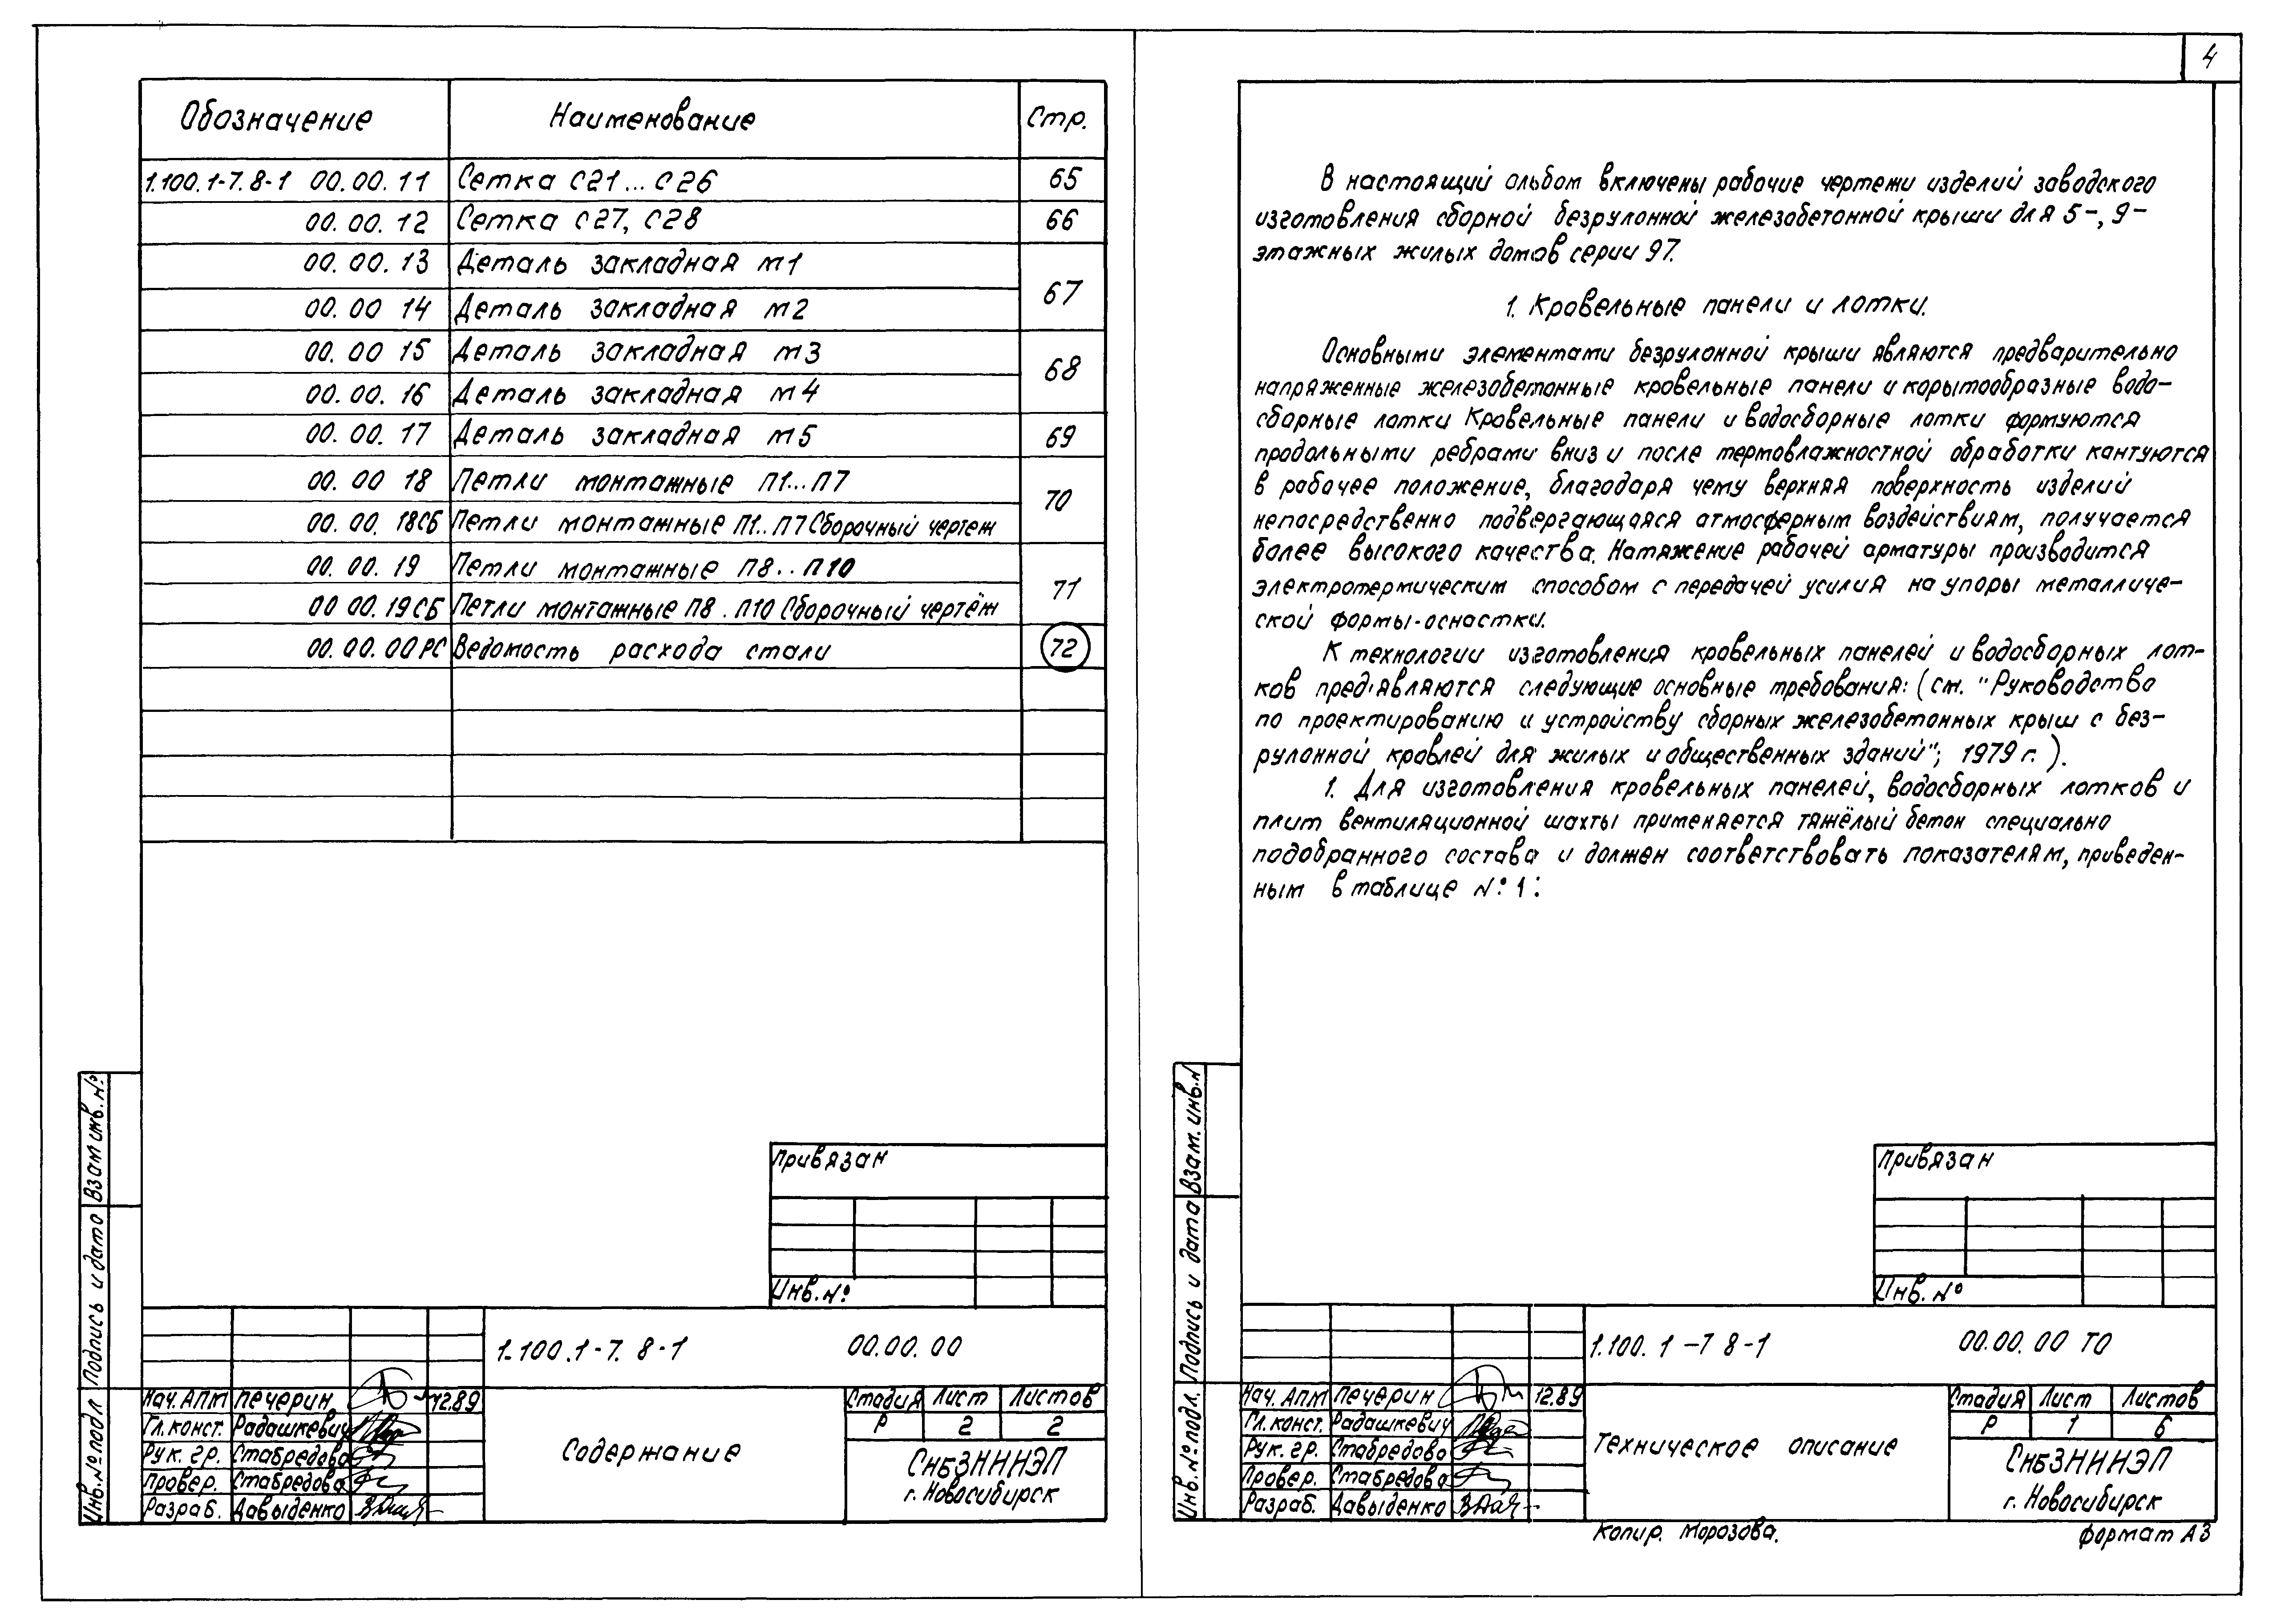 4
Обозначение Наименование Стр.
1.100.1-7.8-1 00.00.11 Сетка С21...С26 65
00.00.12 Сетка С27, С28 66
00.00.13 Деталь закладная М1
67
00.00 14 Деталь закладная М2
00.00 15 Деталь закладная М3
68
00.00.16 Деталь закладная М4
00.00.17 Деталь закладная М5 69
00.00 18 Петли монтажные П1...П7
70
00.00.18СБ Петли монтажные П1..П7 Сборочный чертеж
00.00.19 Петли монтажные П8..П10
71
00 00.19СБ Петли монтажные П8.П10 Сборочный чертёж
00.00.00РС Ведомость расхода стали 72
Взам инв.№
Подпись и дата
Инв.№ подл
Привязан
Инв.№
1.100.1-7.8-1 00.00.00
Нач.АПМ Печерин 12.89
Гл.конст. Радашкевич
Рук.гр. Стабредова
Провер. Стабредова
Разраб. Давыденко
Содержание
Стадия Лист Листов
Р 2 2
СибЗНИИЭП
г.Новосибирск
В настоящий альбом включены рабочие чертежи изделий заводского
изготовления сборной безрулонной железобетонной крыши для 5-, 9-
этажных жилых домов серии 97.
1. Кровельные панели и лотки.
Основными элементами безрулонной крыши являются предварительно
напряженные железобетонные кровельные панели и корытообразные водо-
сборные лотки Кровельные панели и водосборные лотки формуются
продольными ребрами вниз и после термовлажностной обработки кантуются
в рабочее положение, благодаря чему верхняя поверхность изделий
непосредственно подвергающаяся атмосферным воздействиям, получается
более высокого качества. Натяжение рабочей арматуры производится
электротермическим способом с передачей усилия на упоры металличе-
ской формы-оснастки.
К технологии изготовления кровельных панелей и водосборных лот-
ков пред'являются следующие основные требования: (см. "Руководства
по проектированию и устройству сборных железобетонных крыш с без-
рулонной кровлей для жилых и общественных зданий"; 1979 г.).
1. Для изготовления кровельных панелей, водосборных лотков и
плит вентиляционной шахты применяется тяжёлый бетон специально
подобранного состава и должен соответствовать показателям, приведен-
ным в таблице №1:
Взам.инв.№
Подпись и дата
Инв.№ подл.
Привязан
Инв.№
1.100.1-7 8-1 00.00.00 ТО
Нач.АПМ Печерин 12.89
Гл.конст. Радашкевич
Рук.гр. Стабредова
Провер. Стабредова
Разраб. Давыденко
Техническое описание
Стадия Лист Листов
Р 1 6
СибЗНИИЭП
г.Новосибирск
Копир. Морозова. Формат А3